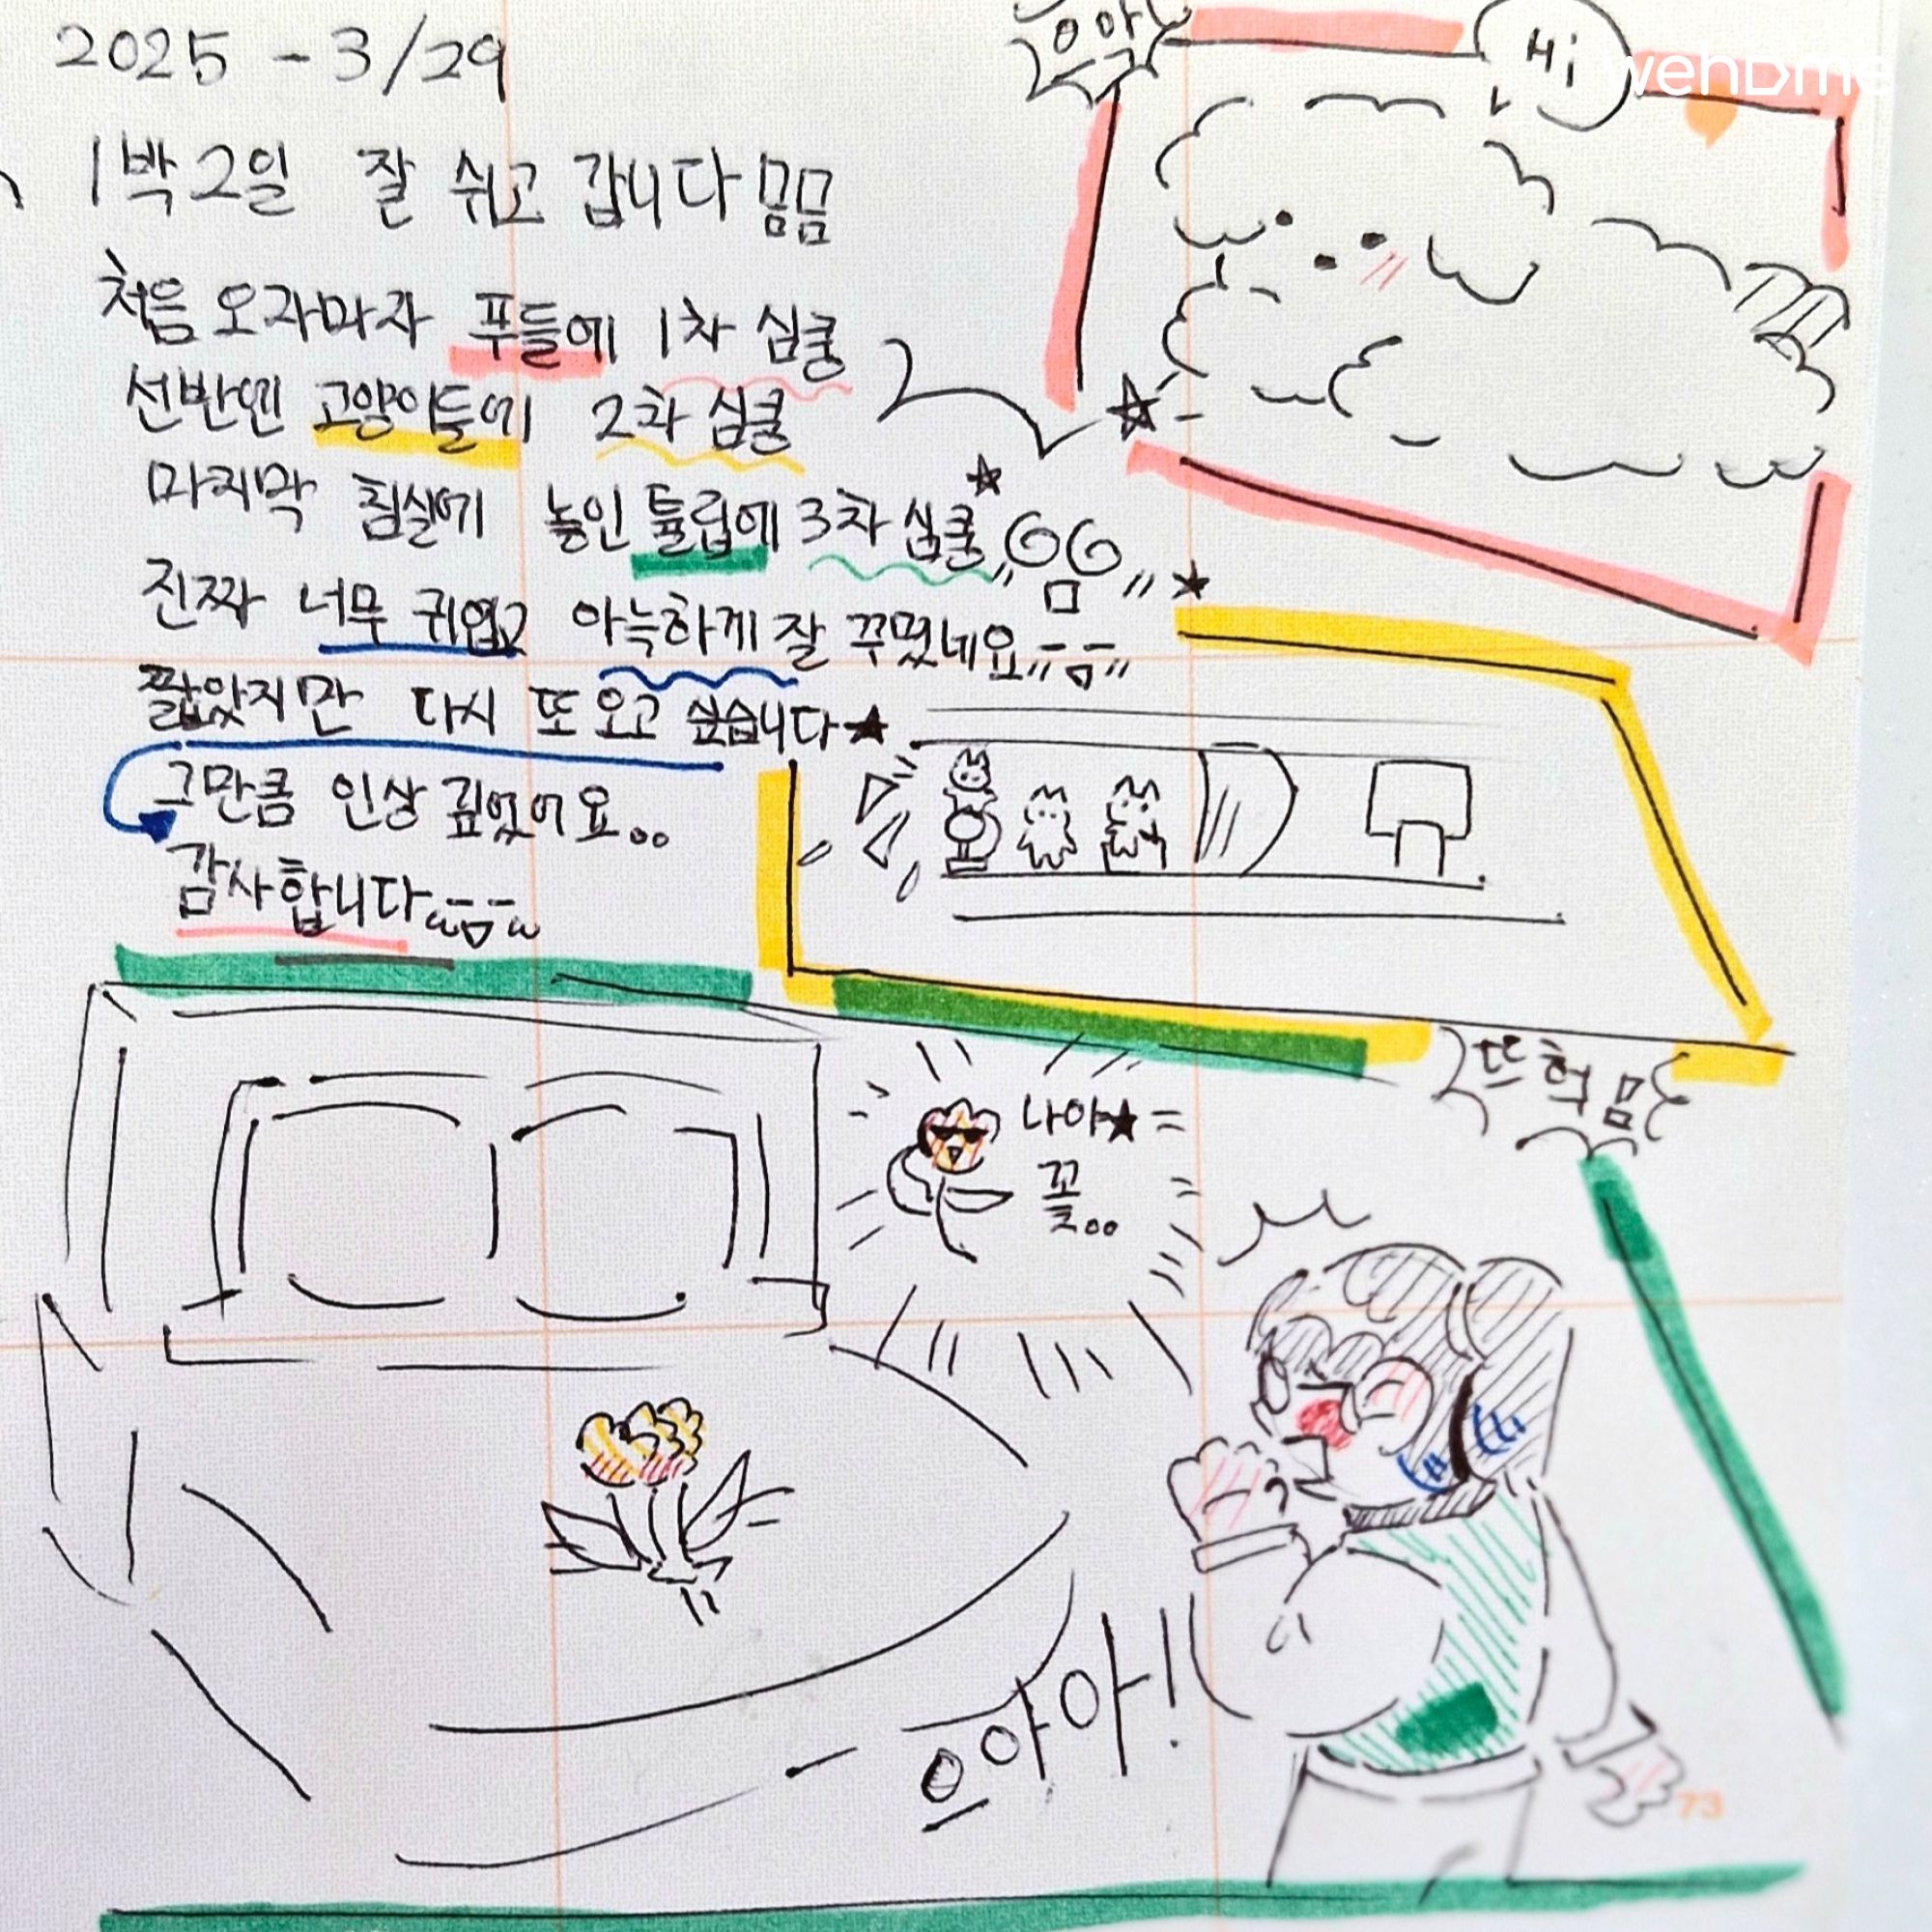 2025 - 3/29
1박2일 잘 쉬고 갑니다 몸몸
처음 오자마자 푸들에 1차 심쿵
선반엔 고양이들에 2차 심쿵
마지막 침실에 놓인 튤립에 3차 심쿵
진짜 너무 귀엽고 아늑하게 잘 꾸몄네요
짧았지만 다시 또 오고 싶습니다★
그만큼 인상 깊었어요..
감사합니다
으악
Hi
wehome
뜨헉
나야★
꽃..
으아아!
73